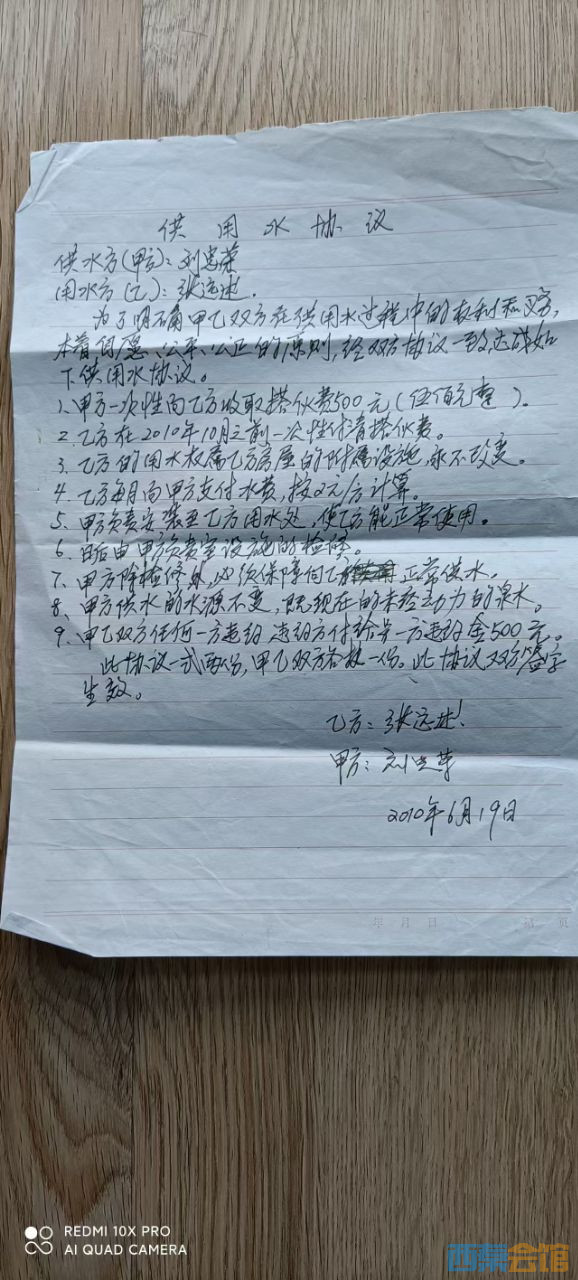 供用水协议
供水方(甲方):刘忠荣
用水方(乙):张远述.
为了明确甲乙双方在供用水过程中的权利和义务,
本着自愿、公平、公正的原则,经双方协议一致,达成如
下供用水协议。
1、甲方一次性向乙方收取搭伙费500元(伍佰元整)。
2、乙方在2010年10月之前一次性付清搭伙费。
3、乙方的用水权属乙方房屋的附属设施,永不改变。
4、乙方每月向甲方支付水费,按2元/方计算。
5、甲方负责安装至乙方用水处,使乙方能正常使用。
6、日后由甲方负责室设施的检修。
7、甲方除检修外,必须保障向乙方正常供水。
8、甲方供水的水源不变,既现在的未经动力的泉水。
9、甲乙双方任何一方违约 违约方付给另一方违约金500元。
此协议一式两份,甲乙双方各执一份。此协议双方签字
生效。
乙方:张远述
甲方:刘忠荣
2010年6月19日
年 月 日 页
REDMI 10X PRO
AI QUAD CAMERA
西渠会馆